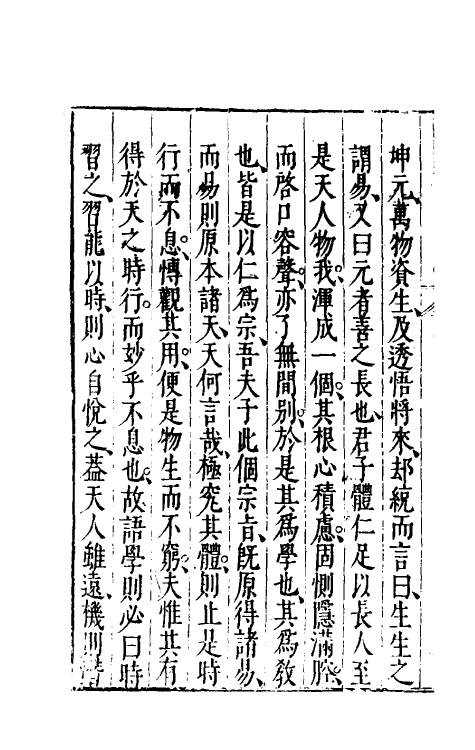 坤元、萬物資生、及透悟將來、却統而言曰、生生之
謂易、又曰元者善之長也、君子體仁足以長人、至
是天人物我、渾成一個、其根心積慮、固惻隱滿腔、
而啓口容聲、亦了無間別、於是其爲學也、其爲教
也、皆是以仁爲宗、吾夫子此個宗旨、既原得諸易、
而易則原本諸天、天何言哉、極究其體、則止是時
行而不息、慱觀其用、便是物生而不窮、夫惟其有
得於天之時行。而妙乎不息也、故語學則必曰時
習之、習能以時、則心自悅之、葢天人雖遠、機則潛